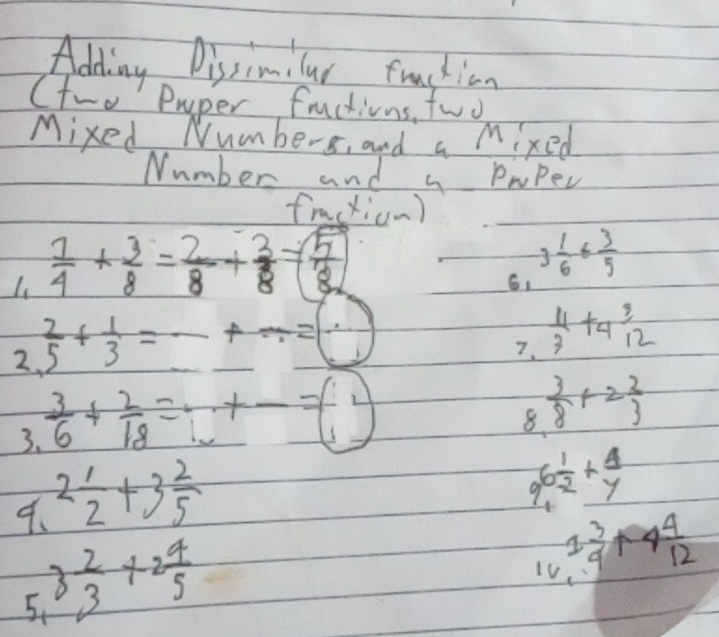 Adding Dissimilar fraction
(two Proper fractions, two
Mixed Numbers, and a Mixed
Number and a Proper
fraction)
1. 1/4 + 3/8 = 2/8 + 3/8 = 5/8
2. 2/5 + 1/3 = — + — =
3. 3/6 + 2/18 = — + — =
4. 2 1/2 + 3 2/5
5. 3 2/3 + 2 4/5
6. 3 1/6 + 3/5
7. + 4 3/12
8. 3/8 + 2 2/3
9. 6 1/2 +
10. 3/4 + 4 4/12